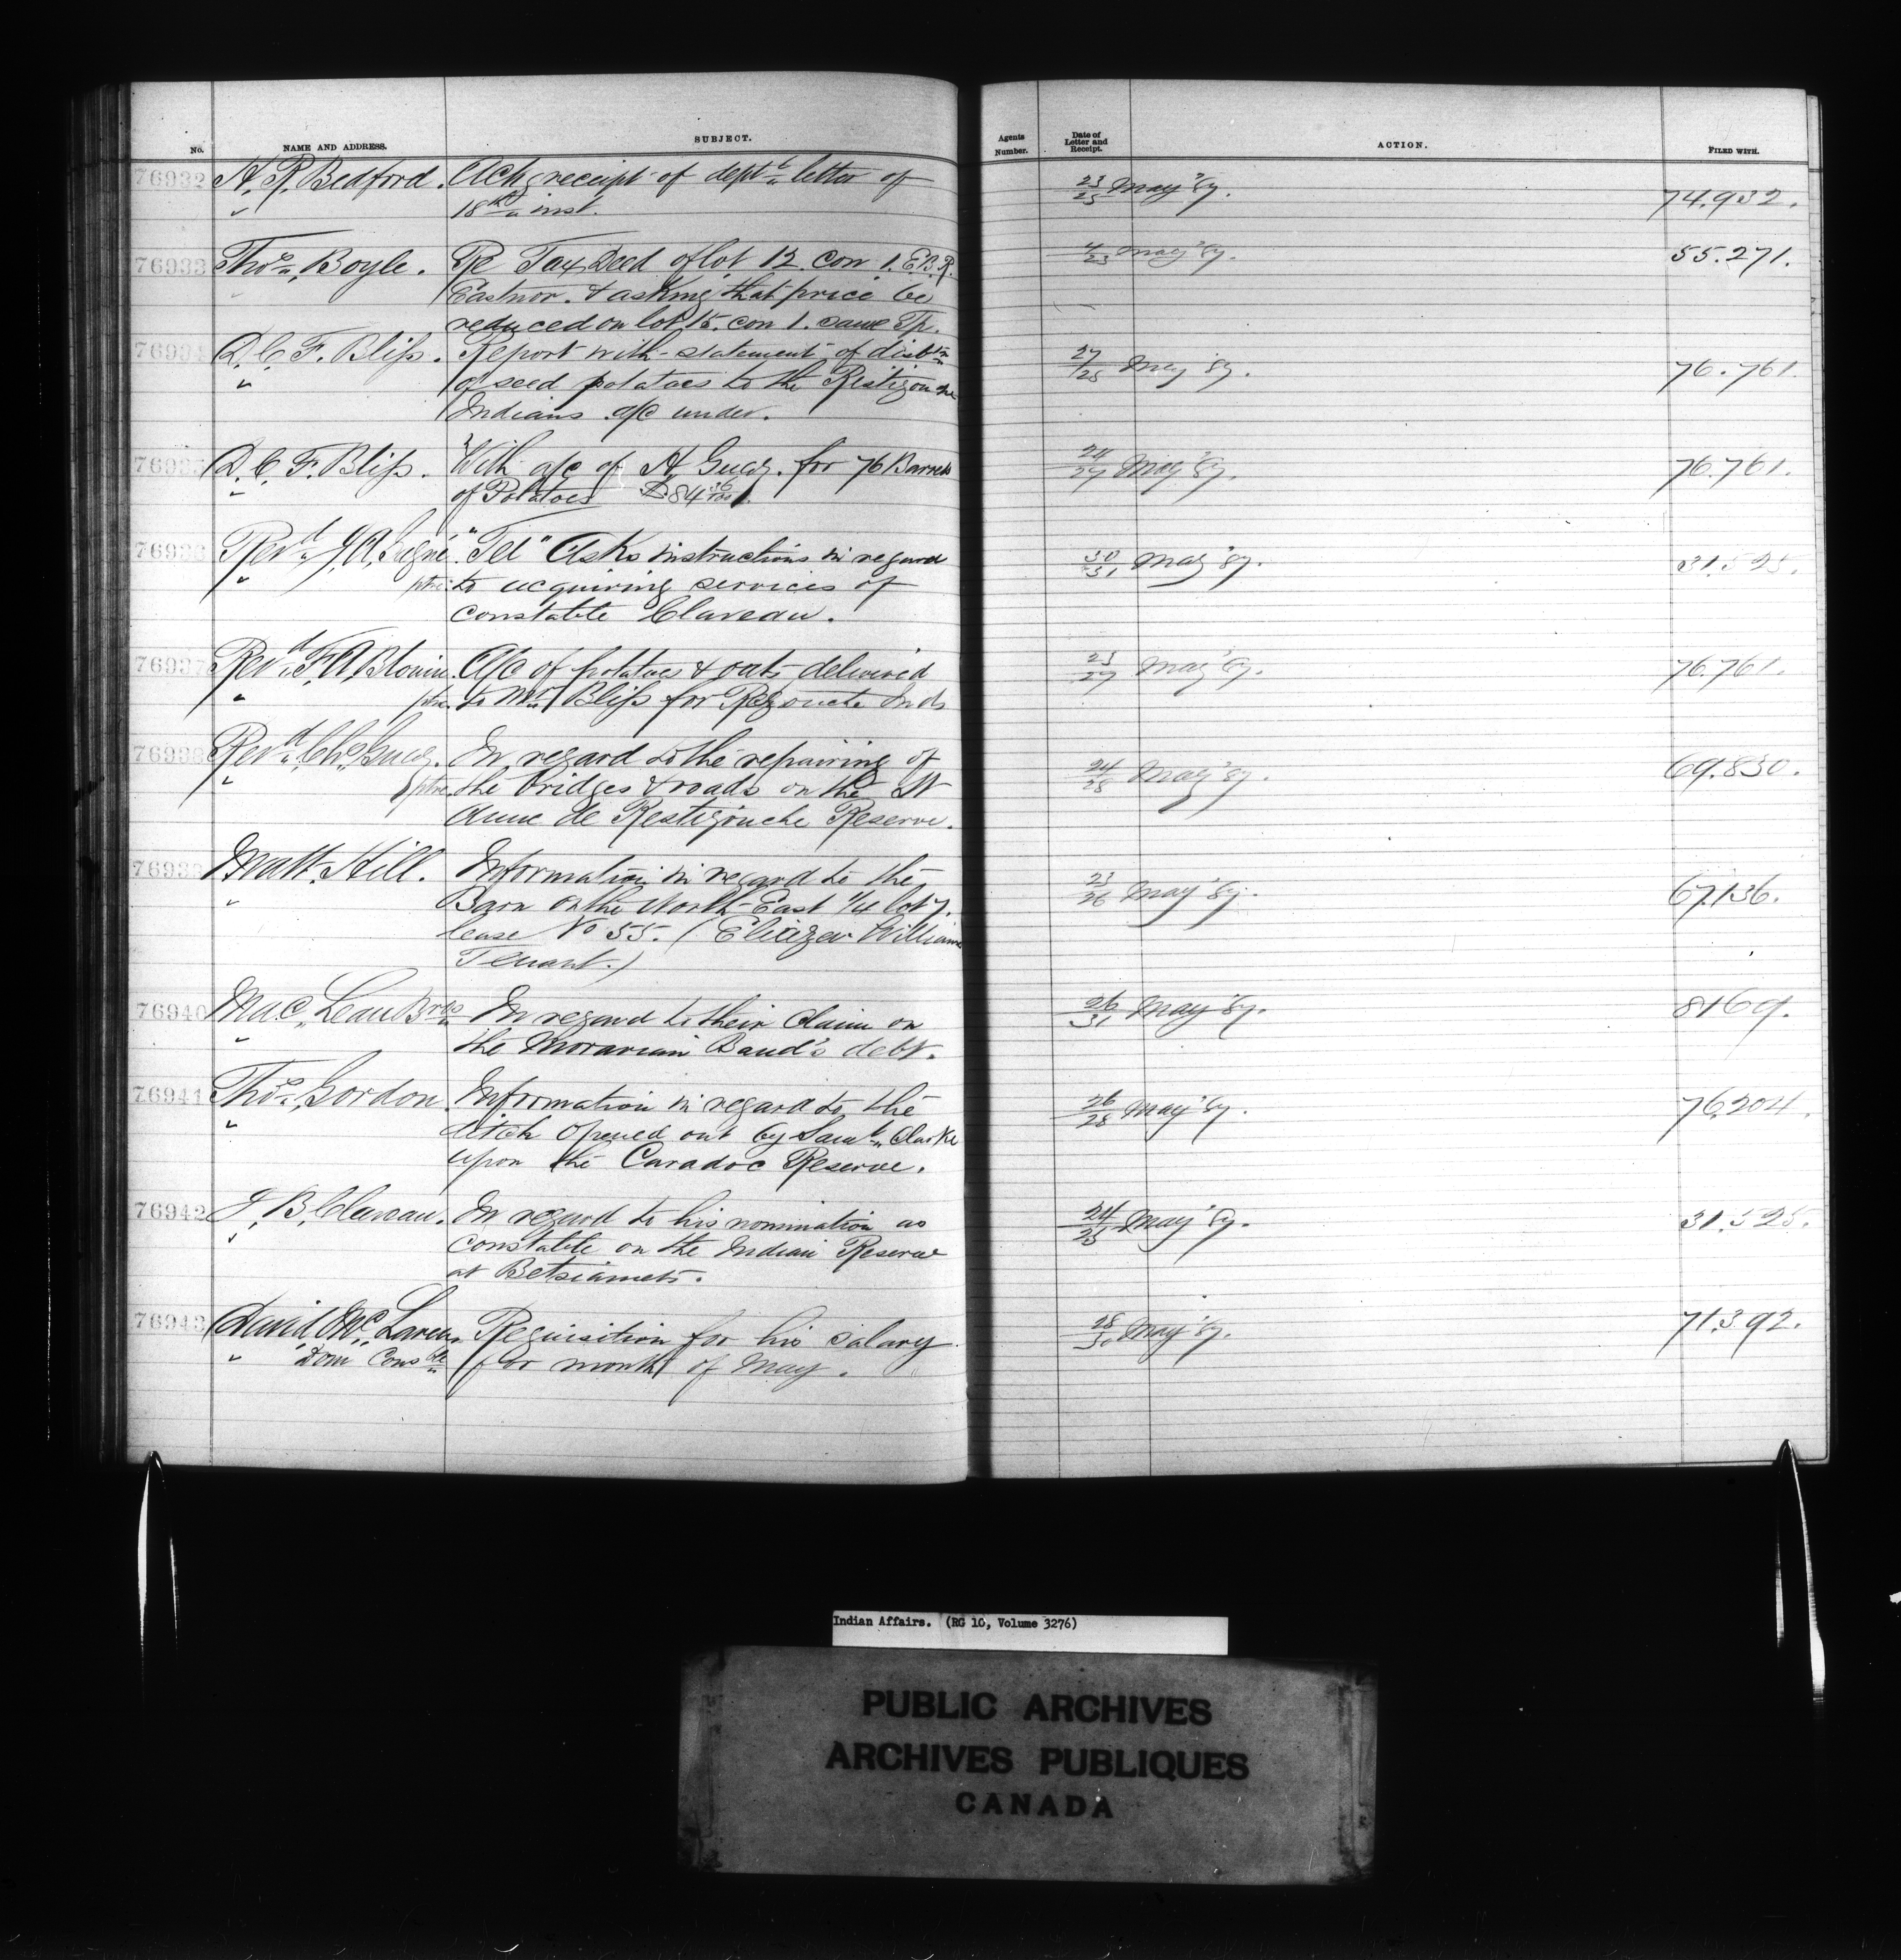 No. NAME AND ADDRESS. SUBJECT. Agents Number. Date of Letter and Receipt. ACTION. FILED WITH.
76932 A. R. Bedford. Ackg receipt of dept's letter of 23/25 May '87. 74.932.
" 18th inst.
76933 Thos. Boyle. Re Tax Deed of lot 12. con 1. E.B.R. 4/23 May '87. 55.271.
Eastnor. & asking that price be
reduced on lot 15. con 1. same Tp.
76934 D. C. F. Bliss. Report with statement of distbn 27/28 May '87. 76.761.
" of seed potatoes to the Ristigouche
Indians a/c under.
76935 D. C. F. Bliss. With a/c of A. Guay. for 76 Barrels 24/27 May '87. 76.761.
" of Potatoes $84 36/100.
76936 Revd. "Tel" Asks instructions in regard 30/31 May '87. 31.525.
" ptre. to acquiring services of
constable Claveau.
76937 Revd. F. A. Blouin. A/c of potatoes & oats delivered 23/27 May '87. 76.761.
" ptre. to Mr. Bliss for Inds
76938 Revd. Chs. Guay. In regard to the repairing of 24/28 May '87. 69.830.
" ptre. the bridges & roads on the St
Anne de Restigouche Reserve.
76939 Matt. Hill. Information in regard to the 23/26 May '87. 67.136.
" Barn on the North-East 1/4 lot 7.
lease No 55. (Eliezer Williams
Tenant.)
76940 MacLean Bros In regard to their claim on 26/31 May '87. 8169.
" the Moravian Band's debt.
76941 Thos. Gordon. Information in regard to the 26/28 May '87. 76.204.
" ditch opened out by Saml. Clarke
upon the Caradoc Reserve.
76942 J. B. Claveau. In regard to his nomination as 24/25 May '87. 31.525.
" constable on the Indian Reserve
at Betsiamets.
76943 David McLaren. Requisition for his salary 28/30 May '87. 71.392.
" Dom Consble for month of May.
Indian Affairs. (RG 10, Volume 3276)
PUBLIC ARCHIVES
ARCHIVES PUBLIQUES
CANADA